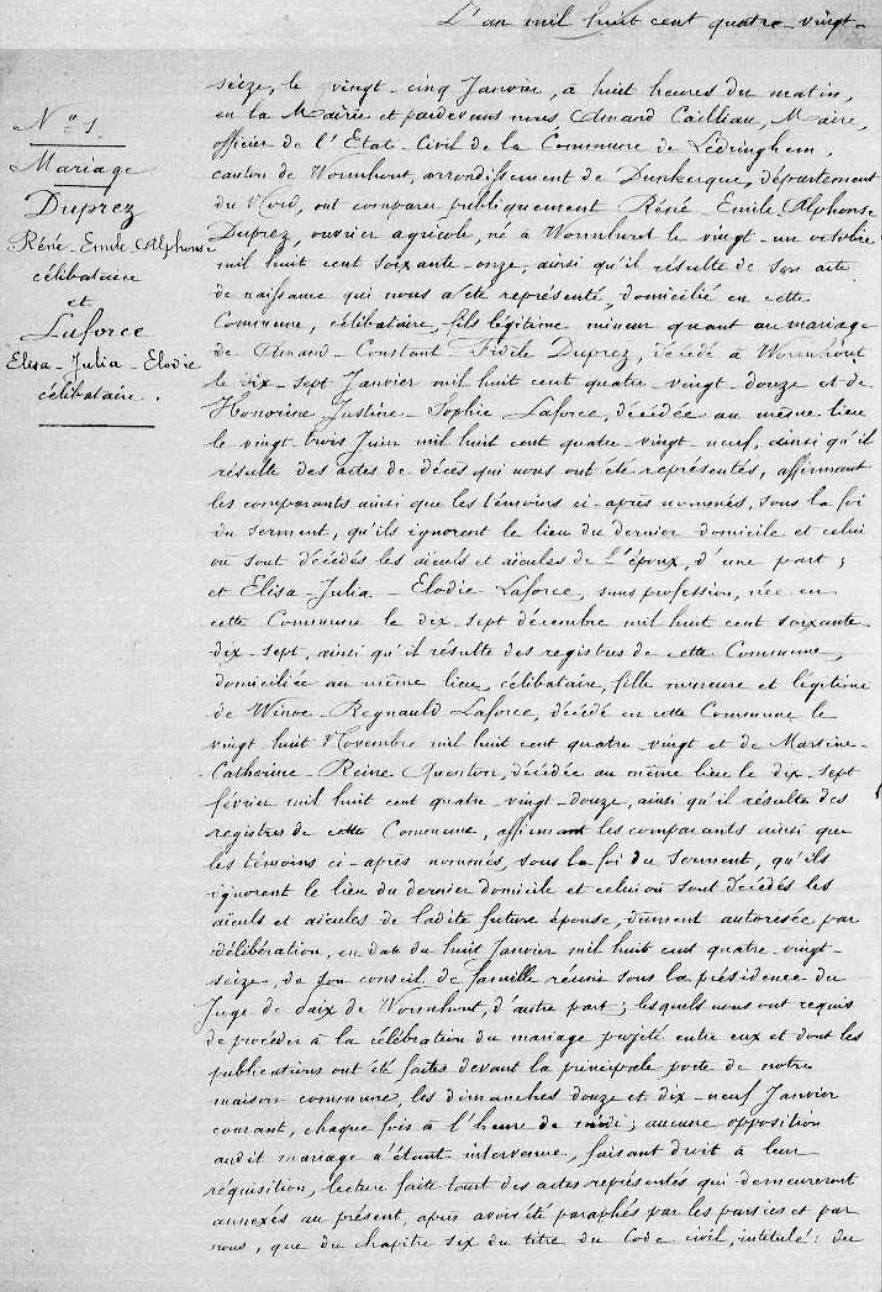 L'an mil huit cent quatre-vingt-
N° 1
Mariage
Duprez
Réné-Emile-Alphonse
célibataire
et
Laforce
Elisa-Julia-Elodie
célibataire.
seize, le vingt-cinq Janvier, à huit heures du matin,
en la Mairie et pardevant nous Amand Cailliau, Maire,
officier de l'Etat-Civil de la Commune de Lédringhem,
canton de Wormhout, arrondissement de Dunkerque, département
du Nord, ont comparu publiquement Réné-Emile-Alphonse
Duprez, ouvrier agricole, né à Wormhout le vingt-un octobre
mil huit cent soixante-onze, ainsi qu'il résulte de son acte
de naissance qui nous a été représenté, domicilié en cette
Commune, célibataire, fils légitime mineur quant au mariage
de Amand-Constant-Fidèle Duprez, décédé à Wormhout
le dix-sept Janvier mil huit cent quatre-vingt-douze et de
Honorine-Justine-Sophie Laforce, décédée au même lieu
le vingt-trois Juin mil huit cent quatre-vingt-neuf, ainsi qu'il
résulte des actes de décès qui nous ont été représentés, affirmant
les comparants ainsi que les témoins ci-après nommés, sous la foi
du serment, qu'ils ignorent le lieu du dernier domicile et celui
où sont décédés les aïeuls et aïeules de l'époux, d'une part ;
et Elisa-Julia-Elodie Laforce, sans profession, née en
cette Commune le dix-sept décembre mil huit cent soixante-
dix-sept, ainsi qu'il résulte des registres de cette Commune,
domiciliée au même lieu, célibataire, fille mineure et légitime
de Winoc-Regnauld Laforce, décédé en cette Commune le
vingt huit Novembre mil huit cent quatre-vingt et de Martine-
Catherine-Reine Quenton, décédée au même lieu le dix-sept
février mil huit cent quatre-vingt-douze, ainsi qu'il résulte des
registres de cette Commune, affirmant les comparants ainsi que
les témoins ci-après nommés, sous la foi du serment, qu'ils
ignorent le lieu du dernier domicile et celui où sont décédés les
aïeuls et aïeules de ladite future épouse, dûment autorisée par
délibération, en date du huit Janvier mil huit cent quatre-vingt-
seize, de son conseil de famille réuni sous la présidence du
Juge de Paix de Wormhout, d'autre part ; lesquels nous ont requis
de procéder à la célébration du mariage projeté entre eux et dont les
publications ont été faites devant la principale porte de notre
maison commune, les dimanches douze et dix-neuf Janvier
courant, chaque fois à l'heure de midi ; aucune opposition
audit mariage n'étant intervenue, faisant droit à leur
réquisition, lecture faite tant des actes représentés qui demeureront
annexés au présent, après avoir été paraphés par les parties et par
nous, que du chapitre six du titre du Code civil, intitulé : du